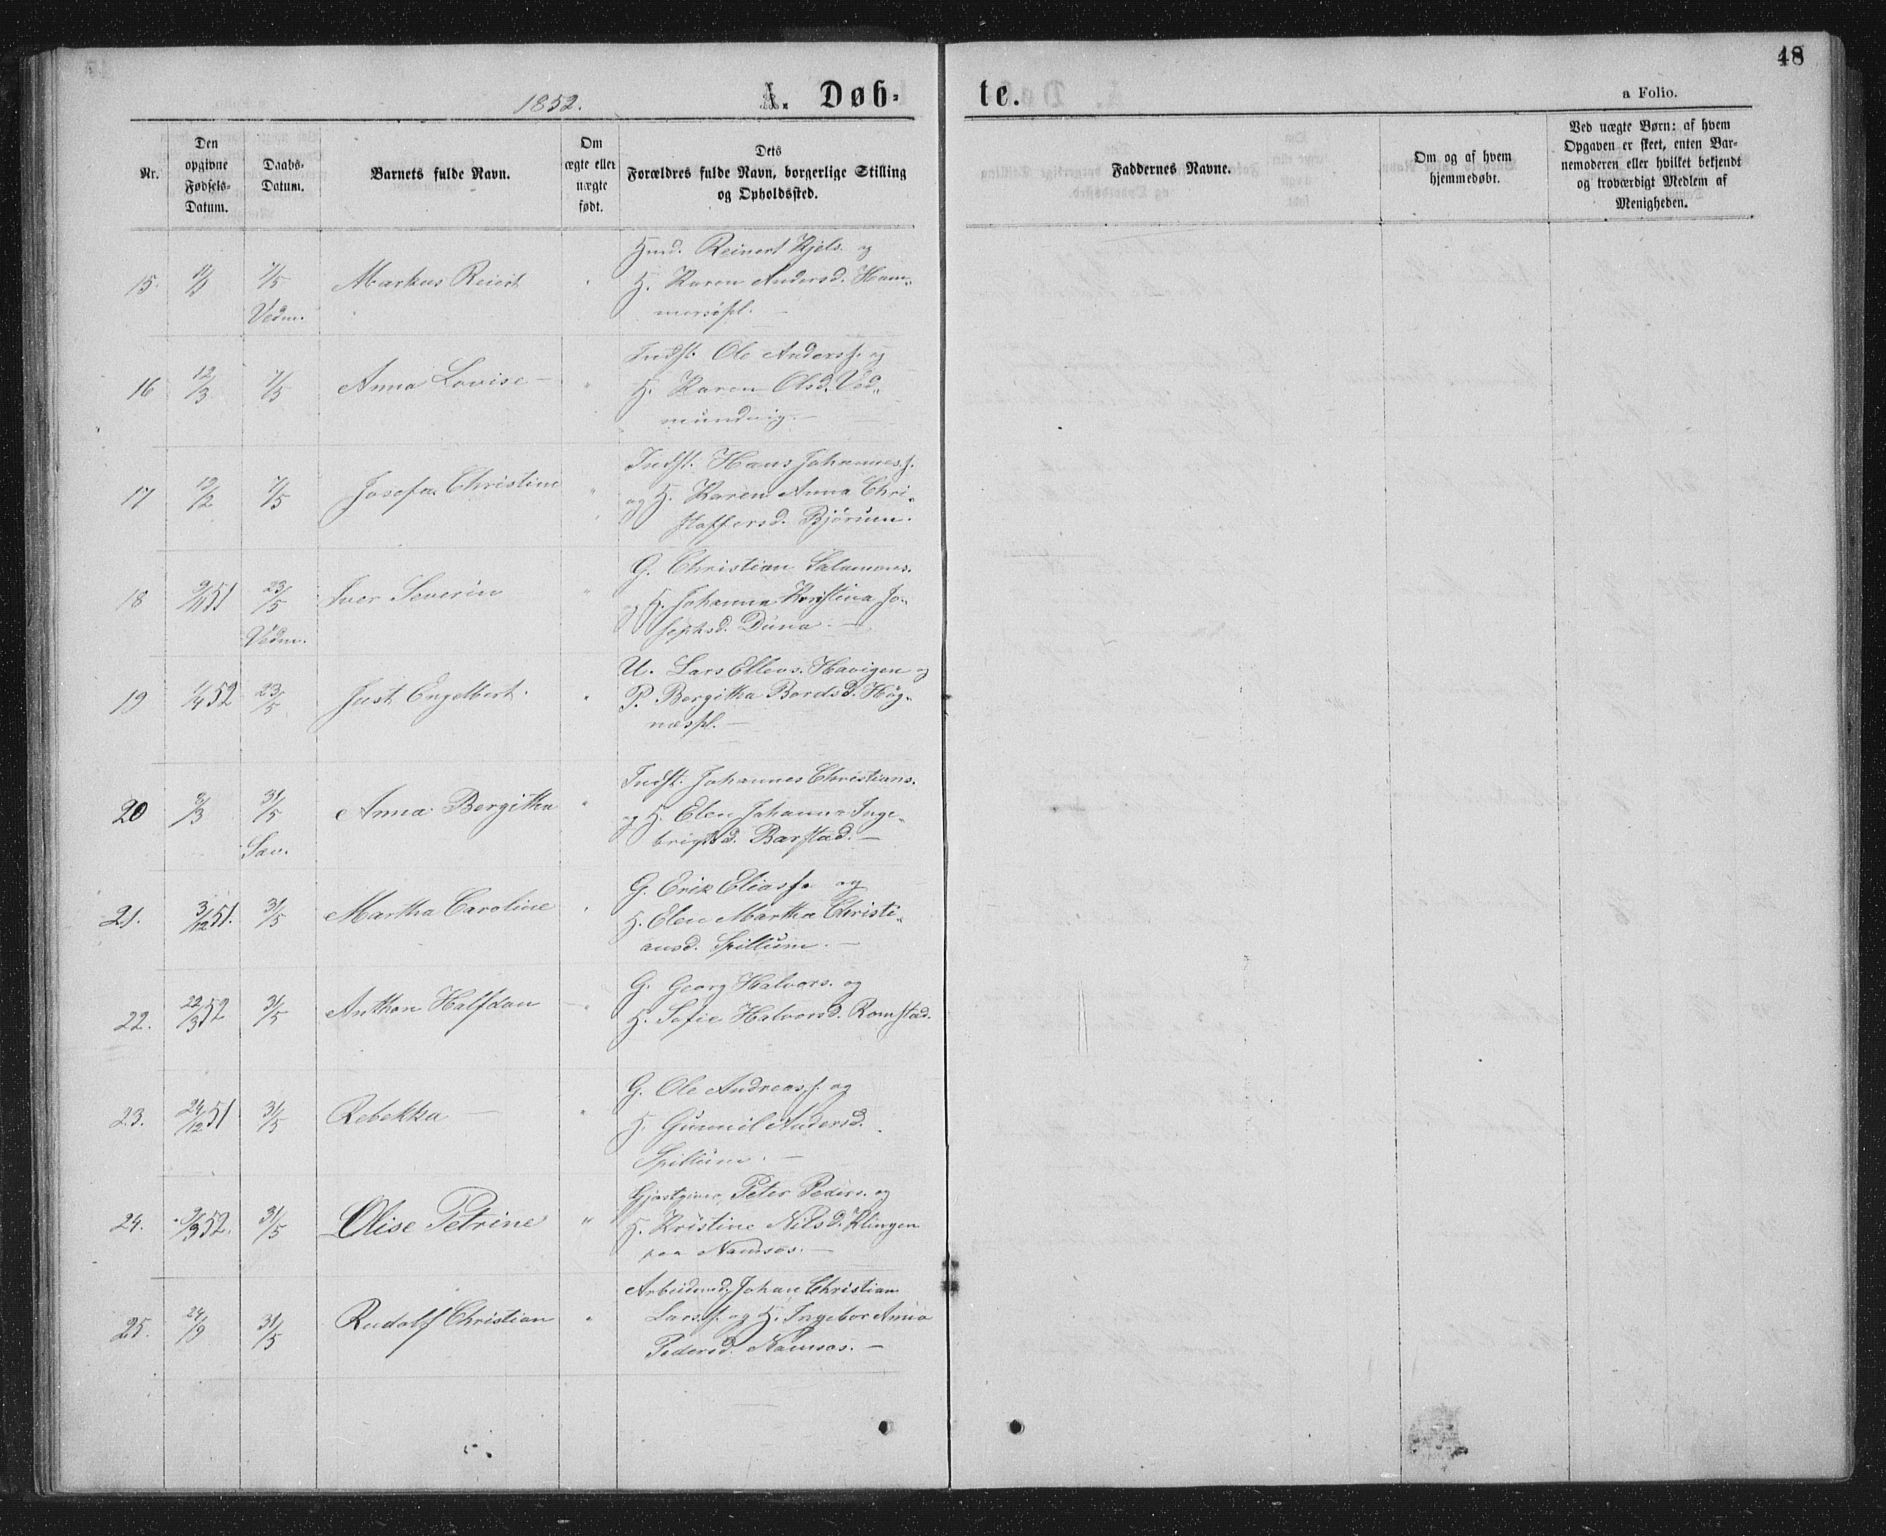 48
1852.
A. Døb-
te.
a Folio.
Nr.
Den opgivne Fødsels-Datum.
Daabs-Datum.
Barnets fulde Navn.
Om ægte eller uægte født.
Dets Forældres fulde Navn, borgerlige Stilling og Opholdssted.
Faddernes Navne.
Om og af hvem hjemmedøbt.
Ved uægte Børn: af hvem Opgaven er skeet, enten Barnemoderen eller hvilket bekjendt og troværdigt Medlem af Menigheden.
Reinert Kjels. og
15. 7/5 Markus Reiert " H. Karen Andersd. Ham-
Vedm. mersøpl. —
Indst. Ole Anderss. og
16 12/3 7/5 Anna Lovise — " H. Karen Olsd. Ved-
mundvig. —
Indst. Hans Johanness.
17 12/2 7/5 Josefa Christine " og H. Karen Anna Chri-
stoffersd. Bjørum.
G. Christian Salamons.
18 9/11 51 23/5 Iver Severin " og H. Johanna Kristina Jo-
Vedm. sephsd. Duna. —
U. Lars Ellevs. Havigen og
19 1/4 52 23/5 Just Engelbert. " P. Bergitha Bardsd. Høg-
næspl. —
Indst. Johannes Christians.
20 9/3 31/5 Anna Bergitha " og H. Elen Johanna Inge-
Sæv. brigtsd. Barstad. —
G. Erik Eliass. og
21. 3/12 51. 31/5 Martha Caroline " H. Elen Martha Christi-
ansd. Spillum. —
G. Georg Halvors. og
22. 22/3 52 31/5 Anthon Halfdan — " H. Sofie Halvorsd. Romstad.
G. Ole Andreass. og
23. 24/12 51 31/5 Rebekka — " H. Gunnil Andersd.
Spillum. —
Gjæstgiver Peter Peders. og
24. 9/3 52. 31/5 Olise Petrine " H. Kristine Nilsd. Klingen
paa Namsos. —
Arbeidsmd. Johan Christian
25. 24/9 31/5 Rudolf Christian " Larss. og H. Ingebor Anna
Pedersd. Namsos. —